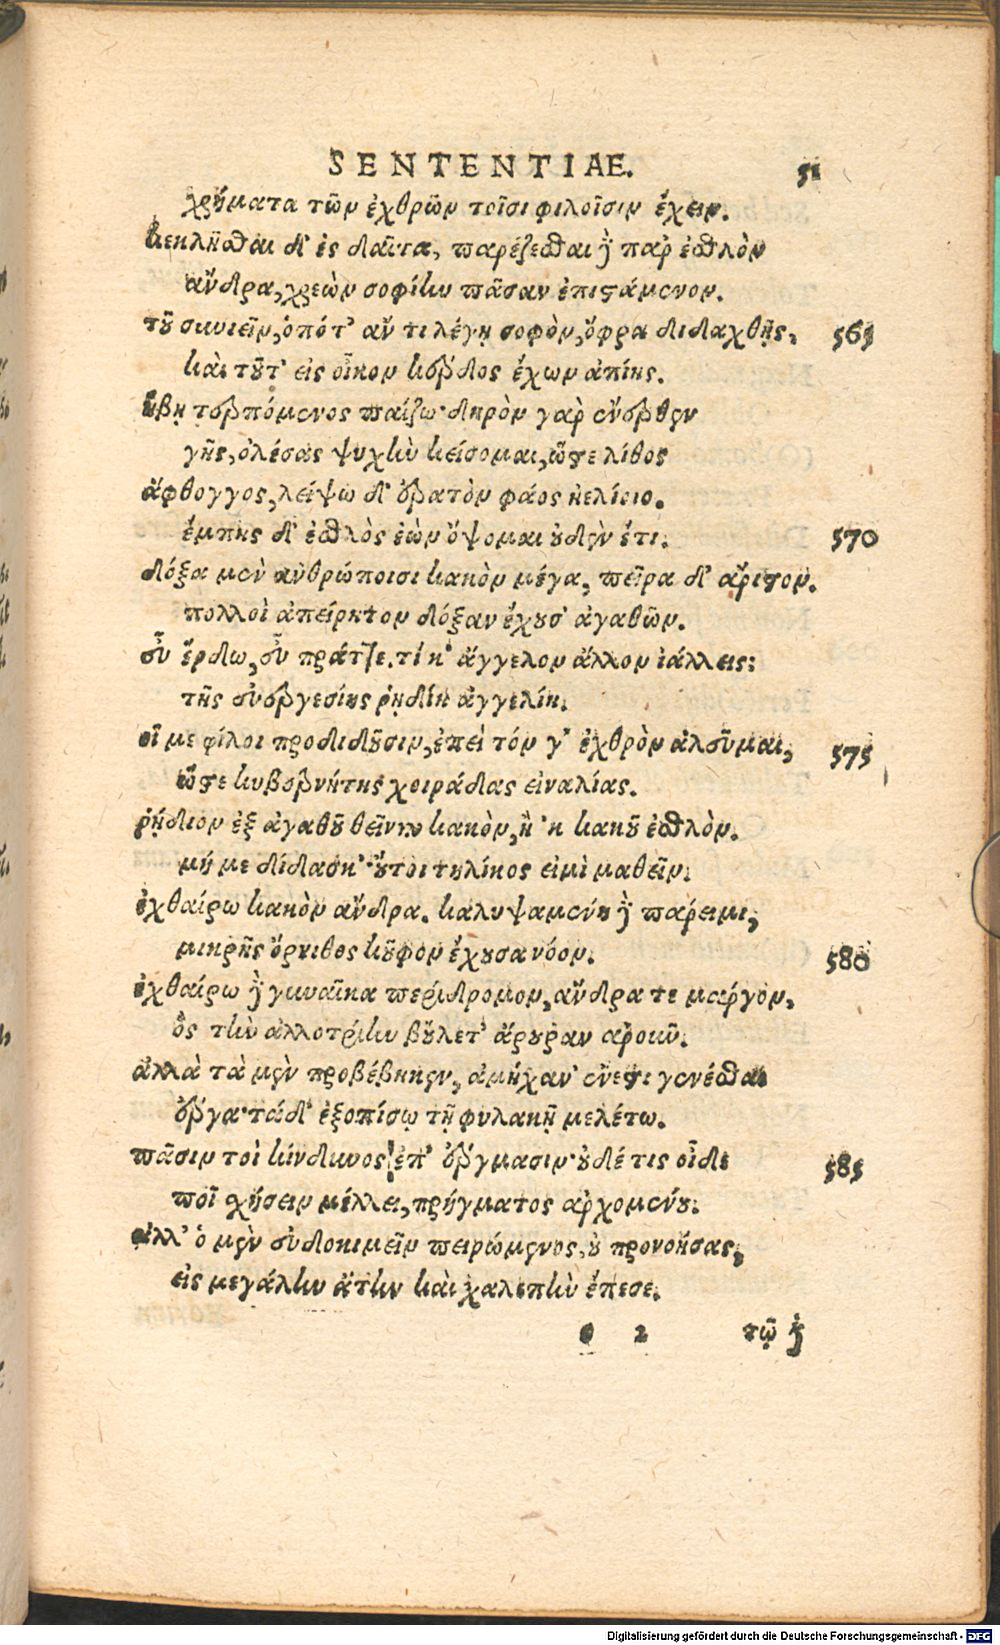 SENTENTIAE. 51
χρήματα τῶν ἐχθρῶν τοῖσι φιλοῖσιν ἔχειν.
κεκλῆσθαι δ' ἐς δαῖτα, παρέζεσθαι ϗ̀ παρ' ἐσθλὸν
ἄνδρα, χρεὼν σοφίην πᾶσαν ἐπιστάμενον.
τοῦ συνιεῖν, ὁπότ' ἄν τι λέγῃ σοφὸν, ὄφρα διδαχθῇς, 565
καὶ τοῦτ' εἰς οἶκον κέρδος ἔχων ἀπίῃς.
ἥβῃ τερπόμενος παίζω· δηρὸν γὰρ ἔνερθεν
γῆς, ὀλέσας ψυχὴν κείσομαι, ὥστε λίθος
ἄφθογγος, λείψω δ' ἐρατὸν φάος ἠελίοιο.
ἔμπης δ' ἐσθλὸς ἐὼν ὄψομαι οὐδὲν ἔτι. 570
δόξα μὲν ἀνθρώποισι κακὸν μέγα, πεῖρα δ' ἄριστον.
πολλοὶ ἀπείρητον δόξαν ἔχουσ' ἀγαθῶν.
εὖ ἔρδω, εὖ πράττε. τί κ' ἄγγελον ἄλλον ἰάλλεις;
τῆς εὐεργεσίης ῥηϊδίη ἀγγελίη.
οἵ με φίλοι προδιδοῦσιν, ἐπεὶ τόν γ' ἐχθρὸν ἀλεῦμαι, 575
ὥστε κυβερνήτης χοιράδας εἰναλίας.
ῥῄδιον ἐξ ἀγαθοῦ θεῖναι κακὸν, ἢ 'κ κακοῦ ἐσθλὸν.
μή με δίδασκ'· οὔτοι τηλίκος εἰμὶ μαθεῖν.
ἐχθαίρω κακὸν ἄνδρα. καλυψαμένη ϗ̀ πάρειμι,
μικρῆς ὄρνιθος κοῦφον ἔχουσα νόον. 580
ἐχθαίρω ϗ̀ γυναῖκα περίδρομον, ἄνδρα τε μάργον,
ὃς τὴν ἀλλοτρίην βούλετ' ἄρουραν ἀροῦν.
ἀλλὰ τὰ μὲν προβέβηκεν, ἀμήχαν' ἔνεστι γενέσθαι
ἔργα· τάδ' ἐξοπίσω τῇ φυλακῇ μελέτω.
πᾶσιν τοὶ κίνδυνος ἐπ' ἔργμασιν· οὐδέ τις οἶδε 585
ποῖ σχήσειν μέλλει, πρήγματος ἀρχομένου.
ἀλλ' ὁ μὲν εὐδοκιμεῖν πειρώμενος, οὐ προνοήσας,
εἰς μεγάλην ἄτην καὶ χαλεπὴν ἔπεσε.
2 τῷ ϗ̀
Digitalisierung gefördert durch die Deutsche Forschungsgemeinschaft - DFG